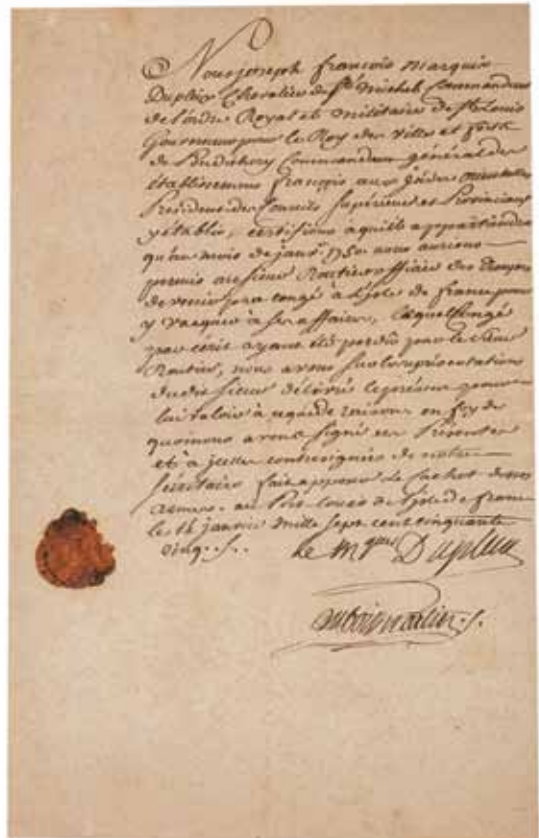 Nous joseph françois marquis
Dupleix Chevalier de St. michel Commandeur
de l'ordre Royal et militaire de St. Louis
Gouverneur pour le Roy des villes et forts
de Pondichery Commandeur général des
établissemens françois aux jndes orientales
President des Conseils superieurs et Provinciaux
y établis, certifions a qu'il appartiendra
qu'au mois de janr. 1750 nous aurions
permis au sieur officier des Troupes
de venir par congé à l'jsle de france pour
y vacquer à ses affaires, lequel Congé
par écrit ayant été perdu par le sieur
nous avons sur les représentations
dudit sieur délivré le présent pour
lui valoir à ce que de raison en foy de
quoi nous avons signé ces Présentes
et à jcelles contresignées de notre
secrétaire fait apposer le Cachet de nos
armes. au Port louis de l'jsle de france
le janvier mille sept cent cinquante
Cinq. ./.
Le Mquis Dupleix